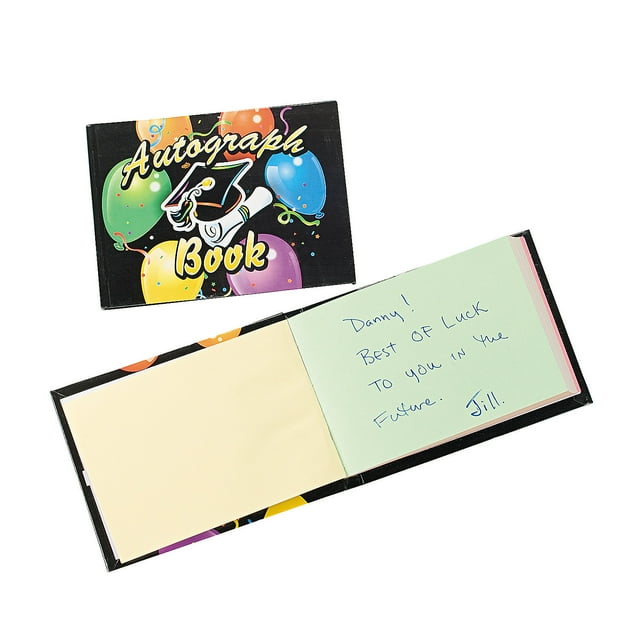 Autograph
Book
Danny!
BEST OF LUCK
TO YOU IN THE
FUTURE. Jill.